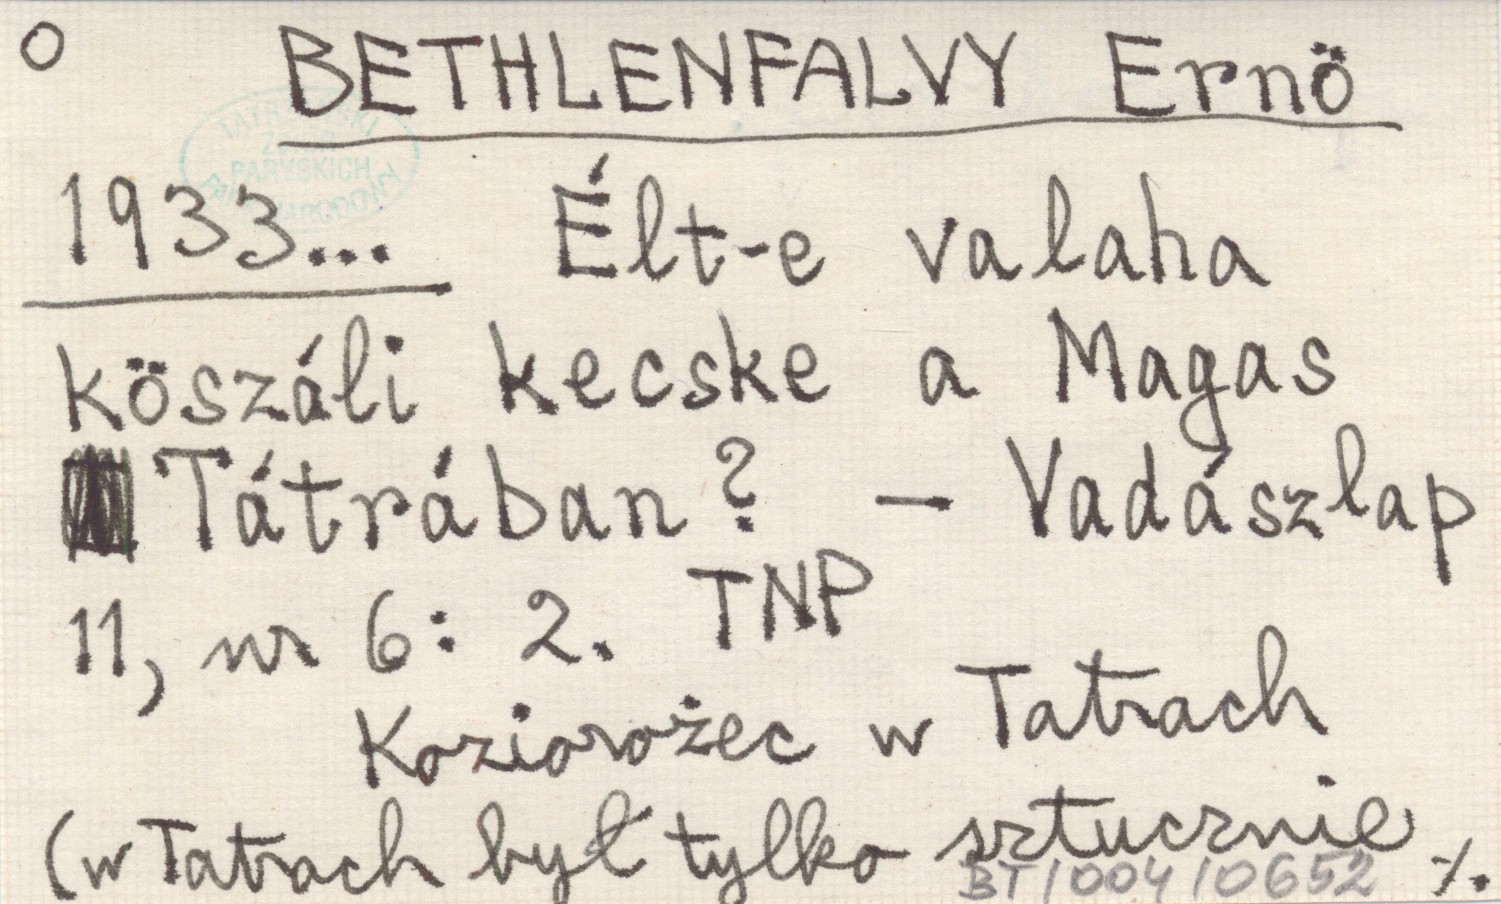 O BETHLENFALVY Ernö
TATRZAŃSKI
ZBIÓR
PARYSKICH
PARK NARODOWY
1933... Élt-e valaha
köszáli kecske a Magas
Tátrában? – Vadászlap
11, nr 6: 2. TNP
Koziorożec w Tatrach
(w Tatrach był tylko sztucznie ·/.
BT/004/0652